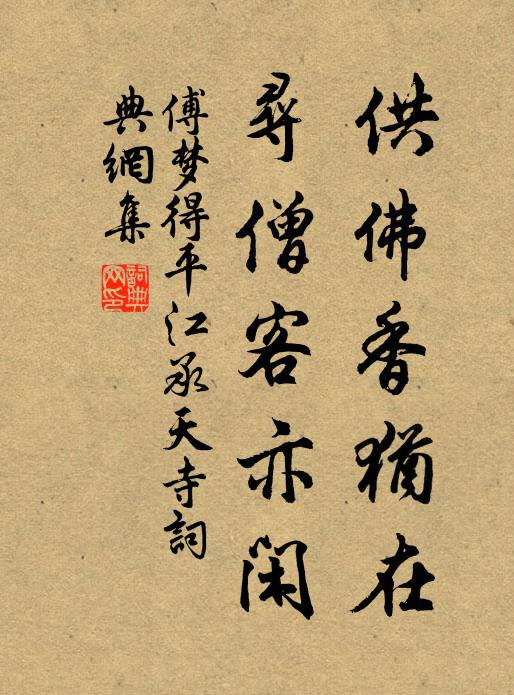 供佛香猶在
尋僧客亦閑
傅梦得平江承天寺詞
典網集
詞典网印